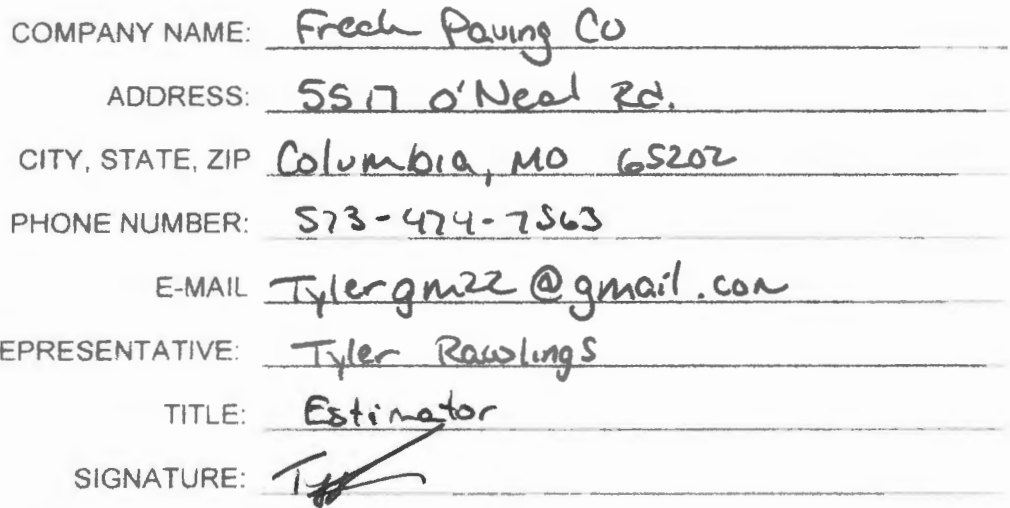 COMPANY NAME: Frech Paving Co
ADDRESS: 5517 O'Neal Rd.
CITY, STATE, ZIP Columbia, MO 65202
PHONE NUMBER: 573-474-7563
E-MAIL Tylergm22@gmail.com
EPRESENTATIVE: Tyler Rawlings
TITLE: Estimator
SIGNATURE: